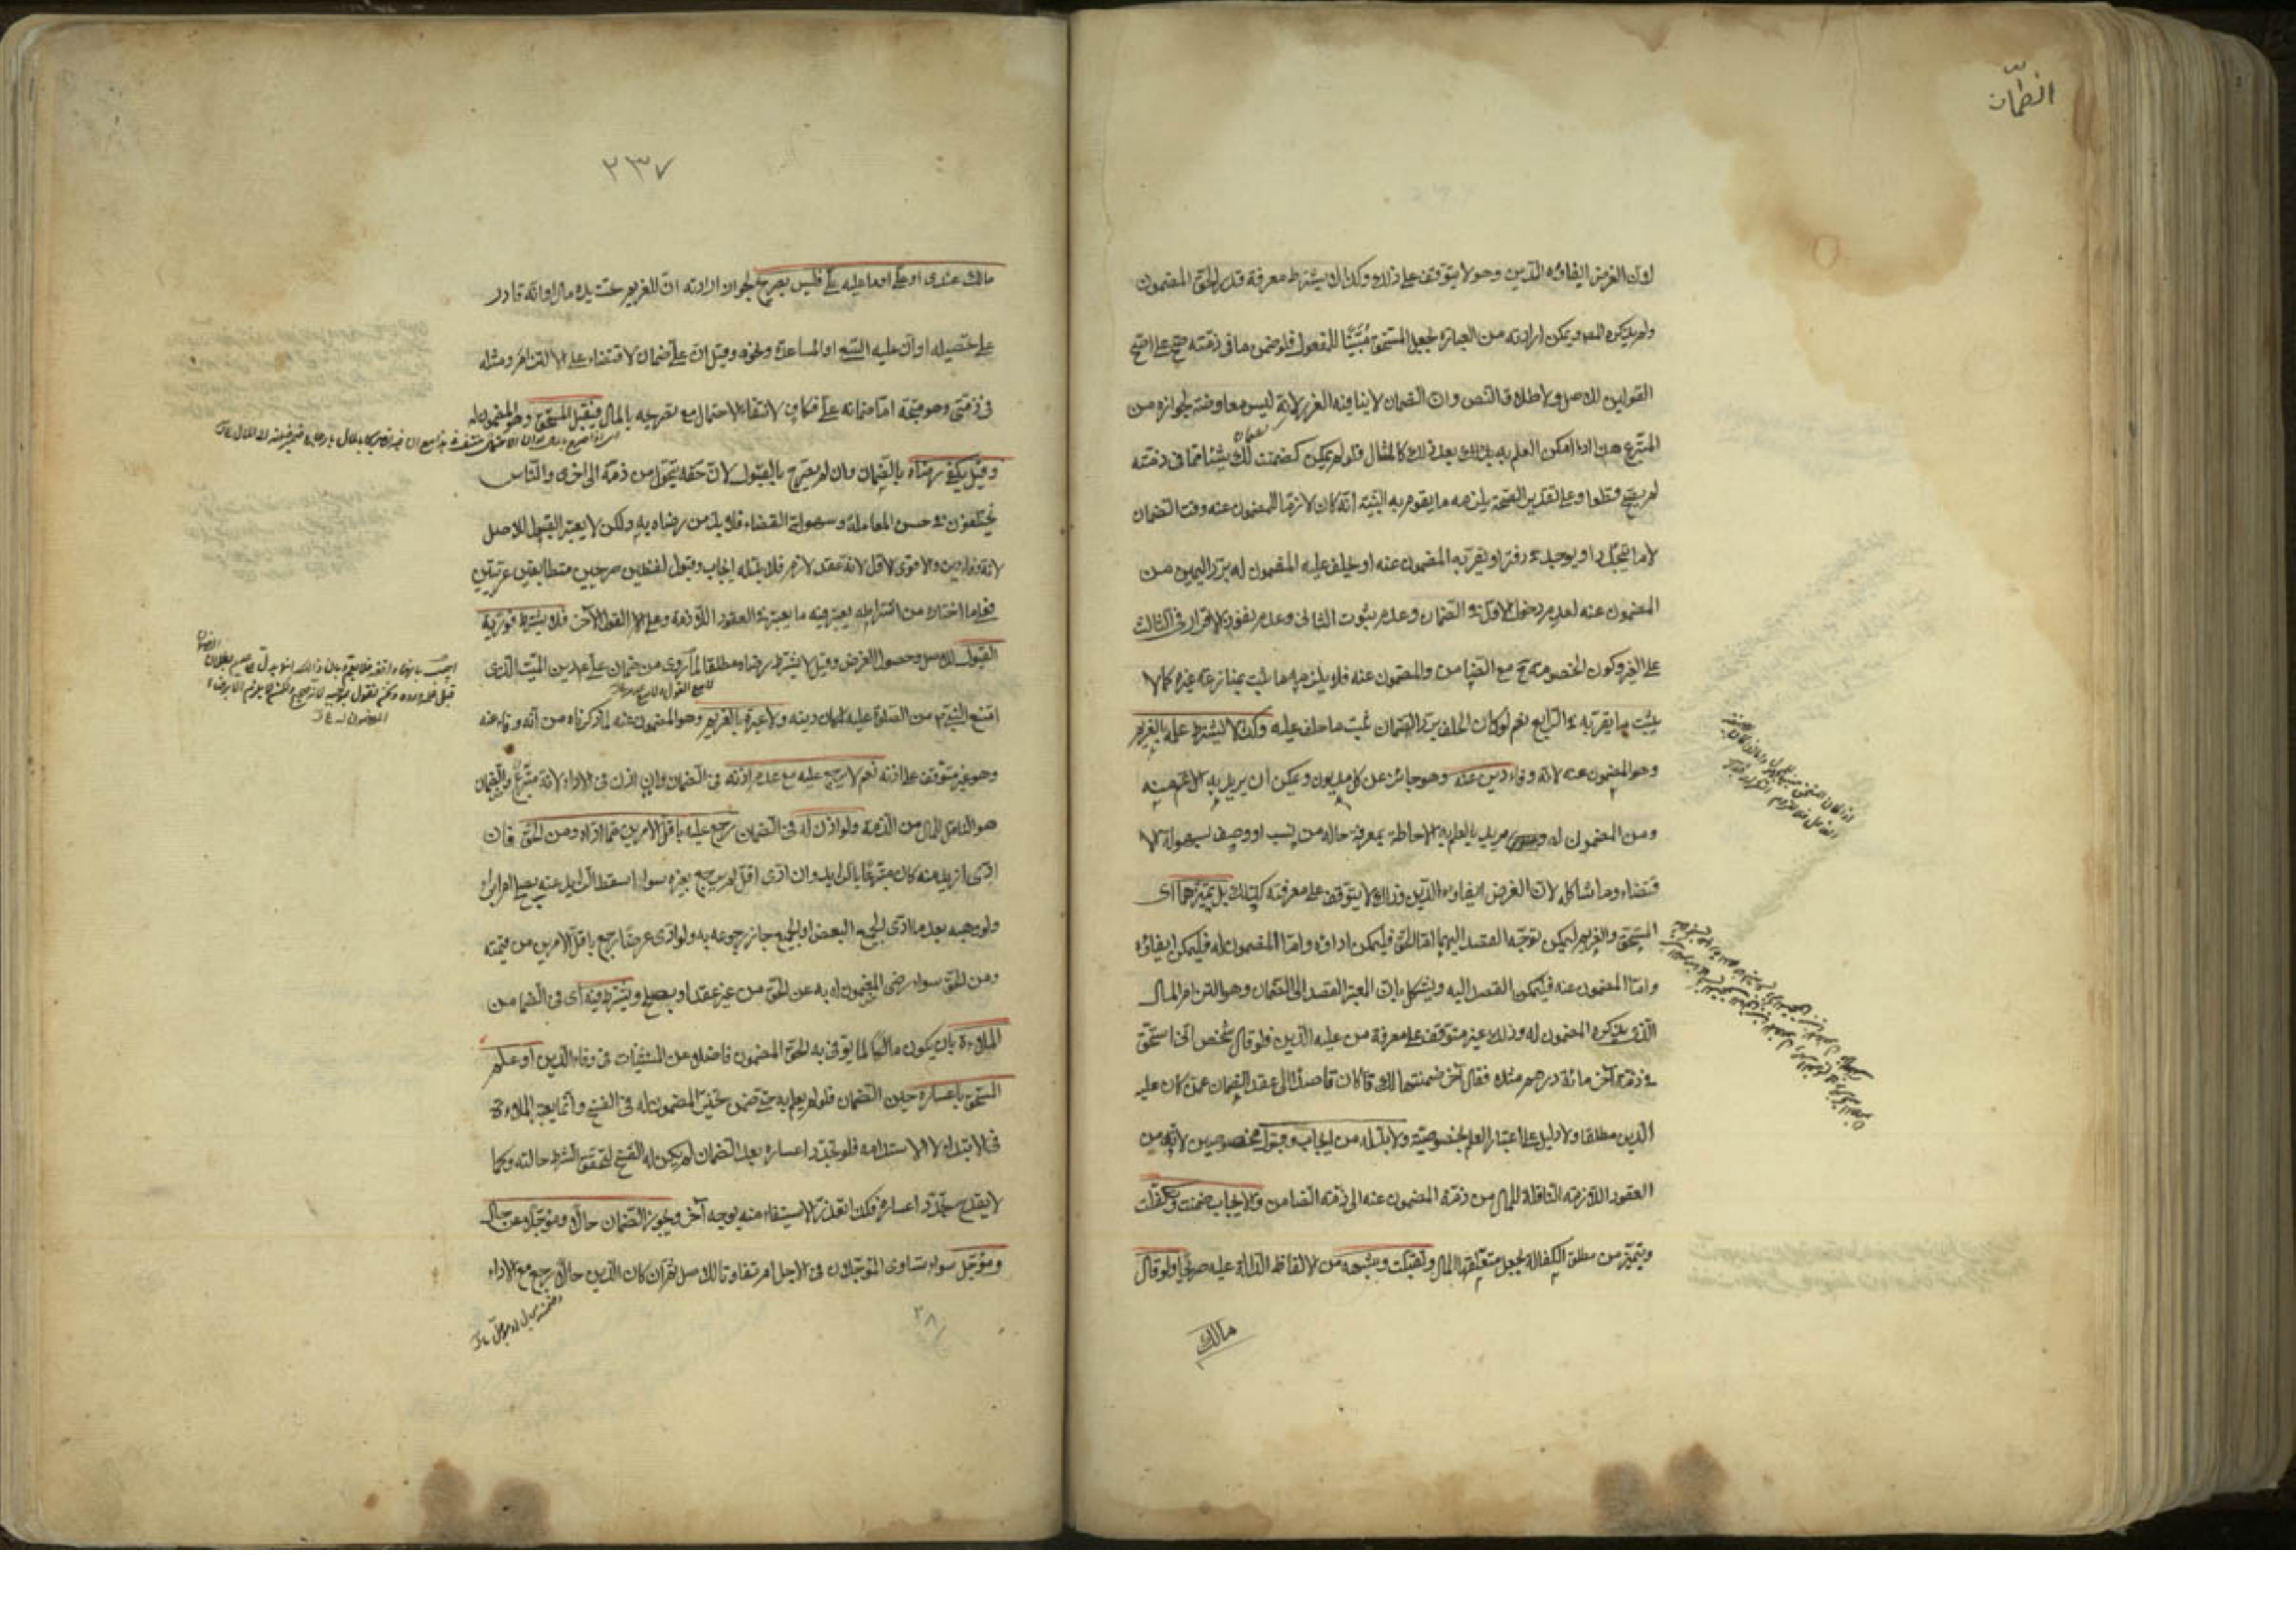 الضمان
لان الغرض ايفاؤه الدين وهو لا يتوقف على ذلك وكذا لا يشترط معرفة قدر الحق المضمون
ولم يذكره المصـ ويمكن ارادته من العبارة بجعل المستحق مبنيا للمفعول فلو ضمن ما فى ذمته صح على اصح
القولين للاصل ولاطلاق النص ولان الضمان لا ينافيه الغرر لانه ليس معاوضة لجوازه من
المتبرع هذا اذا امكن العلم به بعد ذلك كالمثال فلو لم يمكن كضمنت لك شيئا مما فى ذمته
لم يصح قطعا وعلى تقدير الصحة يلزمه ما يقوم به البينة انه كان لازما للمضمون عنه وقت الضمان
لا ما يتجدد او يوجد فى دفتر او يقر به المضمون عنه او يحلف عليه المضمون له برد اليمين من
المضمون عنه لعدم دخول الاول فى الضمان وعدم ثبوت الثانى وعدم نفوذ الاقرار فى الثالث
على الغير وكون الخصومة ح مع الضامن والمضمون عنه فلا يلزمه ما يثبت بمنازعة غيره كما لا
يثبت ما يقر به فى الرابع نعم لو كان الحلف برد الضمان ثبت ما حلف عليه وكذا لا يشترط علمه بالغريم
وهو المضمون عنه لانه وفاء دين عنه وهو جائز عن كل مديون ويمكن ان يريد به الاعم منه
ومن المضمون له ويريد بالعلم به الاحاطة بمعرفة حاله من نسب او وصف لسهولة الا
قتضاء وما شاكله لان الغرض ايفاؤه الدين وذلك لا يتوقف على معرفته كذلك بل تميزهما اى
المستحق والغريم ليمكن توجه القصد اليهما اما الحق فليمكن اداؤه واما المضمون له فليمكن ايفاؤه
واما المضمون عنه فليمكن القصد اليه ويشكل بان المعتبر القصد الى الضمان وهو التزام المال
الذى يذكره المضمون له وذلك غير متوقف على معرفة من عليه الدين فلو قال شخص انى استحق
فى ذمة آخر مائة درهم مثلا فقال آخر ضمنتها لك كان قاصدا الى عقد الضمان عمن كان عليه
الدين مطلقا ولا دليل على اعتبار العلم بخصوصيته ولا بد له من ايجاب وقبول مخصوصين لانه من
العقود اللازمة الناقلة للمال من ذمة المضمون عنه الى ذمة الضامن والايجاب ضمنت وتكفلت
ويتميز من مطلق الكفالة بجعل متعلقها المال وتقبلت وشبهه من الالفاظ الدالة عليه صريحا ولو قال
مالك
٢٣٧
مالك عندى او على او ما عليه على فليس بصريح لجواز ارادته ان للغريم تحت يده مال او انه قادر
على تحصيله او ان عليه السعى او المساعدة ونحوه وقيل ان على ضمان لاقتضاء على الالتزام ومثله
فى ذمتى وهو متجه اما ضمانه على فكاف لانتفاء الاحتمال مع تصريحه بالمال فيقبل المستحق وهو المضمون له
وقيل يكفى رضاه بالضمان وان لم يصرح بالقبول لان حقه يتحول من ذمة الى اخرى والناس
يختلفون فى حسن المعاملة وسهولة القضاء فلا بد من رضاه به ولكن لا يعتبر القبول للاصل
لانه وفاء دين والاقوى الاول لانه عقد لازم فلا بد له من ايجاب وقبول لفظيين صريحين متطابقين عربيين
فعلى ما اختاره من اشتراطه يعتبر فيه ما يعتبر فى العقود اللازمة وعلى القول الآخر فلا يشترط فورية
القبول للاصل وحصول الغرض وقيل لا يشترط رضاه مطلقا لما روى من ضمان على ع دين الميت الذى
امتنع النبى ص من الصلوة عليه لمكان دينه ولا عبرة بالغريم وهو المضمون عنه لما ذكرناه من انه وفاء عنه
وهو غير متوقف على اذنه نعم لا يرجع عليه مع عدم اذنه فى الضمان وان اذن فى الاداء لانه متبرع والضمان
هو الناقل للمال من الذمة ولو اذن له فى الضمان رجع عليه باقل الامرين مما اداه ومن الحق فان
ادى ازيد منه كان متبرعا بالزايد وان ادى اقل لم يرجع بغيره سواء اسقط الزايد عنه بصلح ام ابراء
ولو وهبه بعد ما ادى الجميع البعض او الجميع جاز رجوعه به ولو ادى عرضا رجع باقل الامرين من قيمته
ومن الحق سواء رضى المضمون له به عن الحق من غير عقد او بصلح ويشترط فيه اى فى الضامن
الملاءة بان يكون مالكا لما يوفى به الحق المضمون فاضلا عن المستثنيات فى وفاء الدين او علم
المستحق باعساره حين الضمان فلو لم يعلم به حتى ضمن تخير المضمون له فى الفسخ وانما يعتبر الملاءة
فى الابتداء لا الاستدامة فلو تجدد اعساره بعد الضمان لم يكن له الفسخ لتحقق الشرط حالته وكما
لا يقدح تجدد اعساره فكذا تعذر الاستيفاء منه بوجه آخر ويجوز الضمان حالا ومؤجلا عن حال
ومؤجل سواء تساوى المؤجلان فى الاجل ام تفاوتا للاصل ثم ان كان الدين حالا رجع مع الاداء